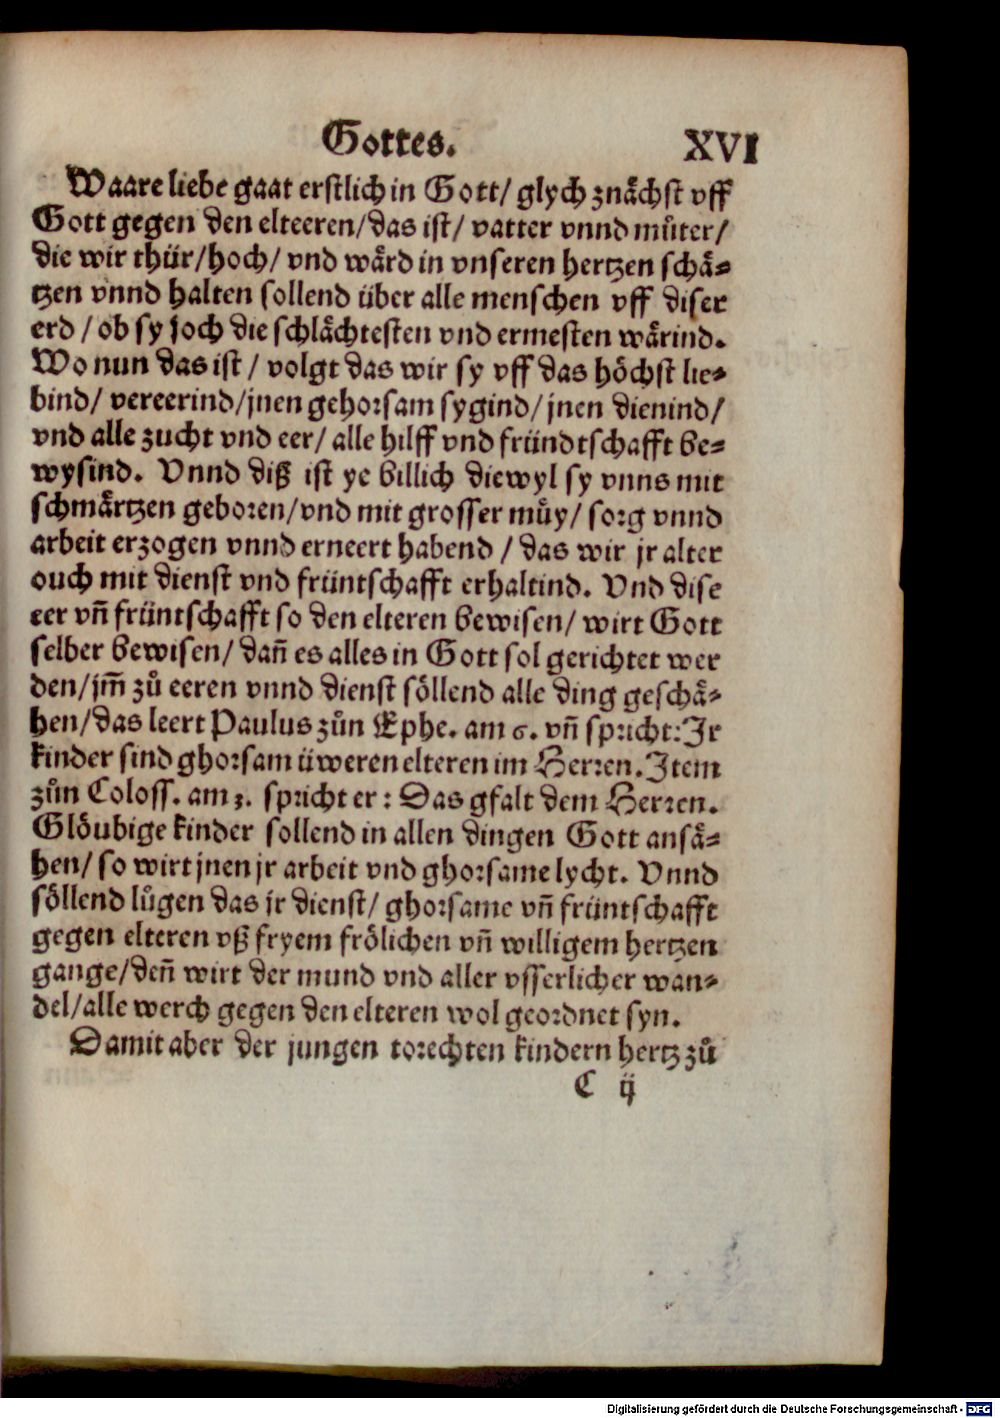 Gottes. XVI
Waare liebe gaat erstlich in Gott/ glych znåchst vff
Gott gegen den elteeren/das ist/ vatter vnnd můter/
die wir thür/hoch/ vnd wård in vnseren hertzen schå⸗
tzen vnnd halten sollend über alle menschen vff diser
erd / ob sy joch die schlåchtesten vnd ermesten wårind.
Wo nun das ist / volgt das wir sy vff das höchst lie⸗
bind/ vereerind/jnen gehorsam sygind/ jnen dienind/
vnd alle zucht vnd eer/ alle hilff vnd fründtschafft be⸗
wysind. Vnnd diß ist ye billich diewyl sy vnns mit
schmårtzen geboren/vnd mit grosser můy/ sorg vnnd
arbeit erzogen vnnd erneert habend / das wir jr alter
ouch mit dienst vnd früntschafft erhaltind. Vnd dise
eer vñ früntschafft so den elteren bewisen/ wirt Gott
selber bewisen/ dañ es alles in Gott sol gerichtet wer
den/jm̃ zů eeren vnnd dienst söllend alle ding geschå⸗
hen/das leert Paulus zůn Ephe. am 6. vñ spricht: Jr
kinder sind ghorsam üweren elteren im Herren. Item
zůn Coloss. am 3. spricht er: Das gfalt dem Herren.
Glöubige kinder sollend in allen dingen Gott anså⸗
hen/ so wirt jnen jr arbeit vnd ghorsame lycht. Vnnd
söllend lůgen das jr dienst/ ghorsame vñ früntschafft
gegen elteren vß fryem frölichen vñ willigem hertzen
gange/deñ wirt der mund vnd aller vsserlicher wan⸗
del/alle werch gegen den elteren wol geordnet syn.
Damit aber der jungen torechten kindern hertz zů
C ij
Digitalisierung gefördert durch die Deutsche Forschungsgemeinschaft - DFG